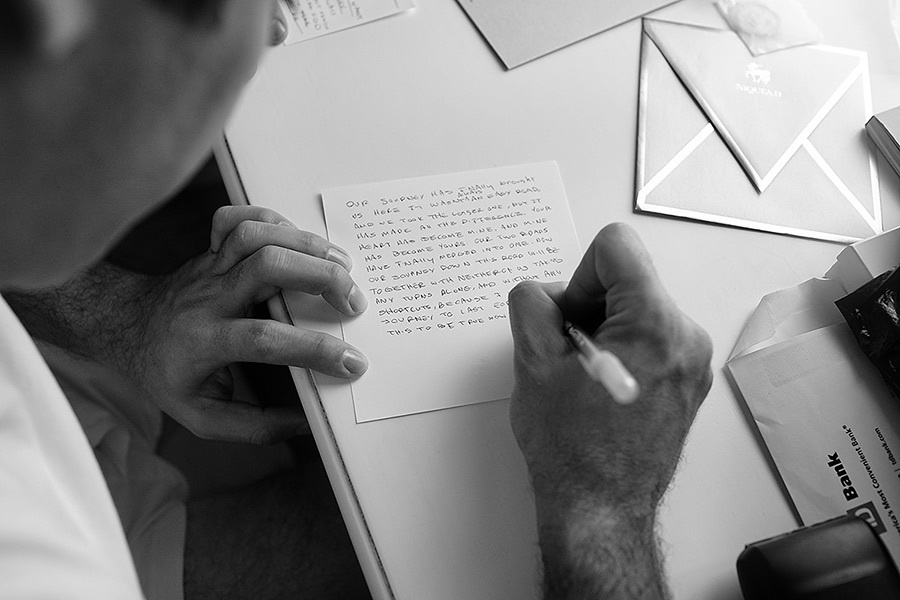 OUR JOURNEY HAS FINALLY brought
US HERE. IT WASN'T AN EASY ROAD,
AND WE TOOK THE LONGER ONE, BUT IT
HAS MADE ALL THE DIFFERENCE. YOUR
HEART HAS BECOME MINE, AND MINE
HAS BECOME YOURS. OUR TWO ROADS
HAVE FINALLY MERGED INTO ONE. NOW
OUR JOURNEY DOWN THIS ROAD WILL BE
TOGETHER WITH NEITHER OF US TAKING
ANY TURNS ALONG, AND WITHOUT ANY
SHORTCUTS, BECAUSE I
JOURNEY TO LAST
THIS TO BE TRUE NOW
NIQUEA.D
Bank
America's Most Convenient Bank®
tdbank.com